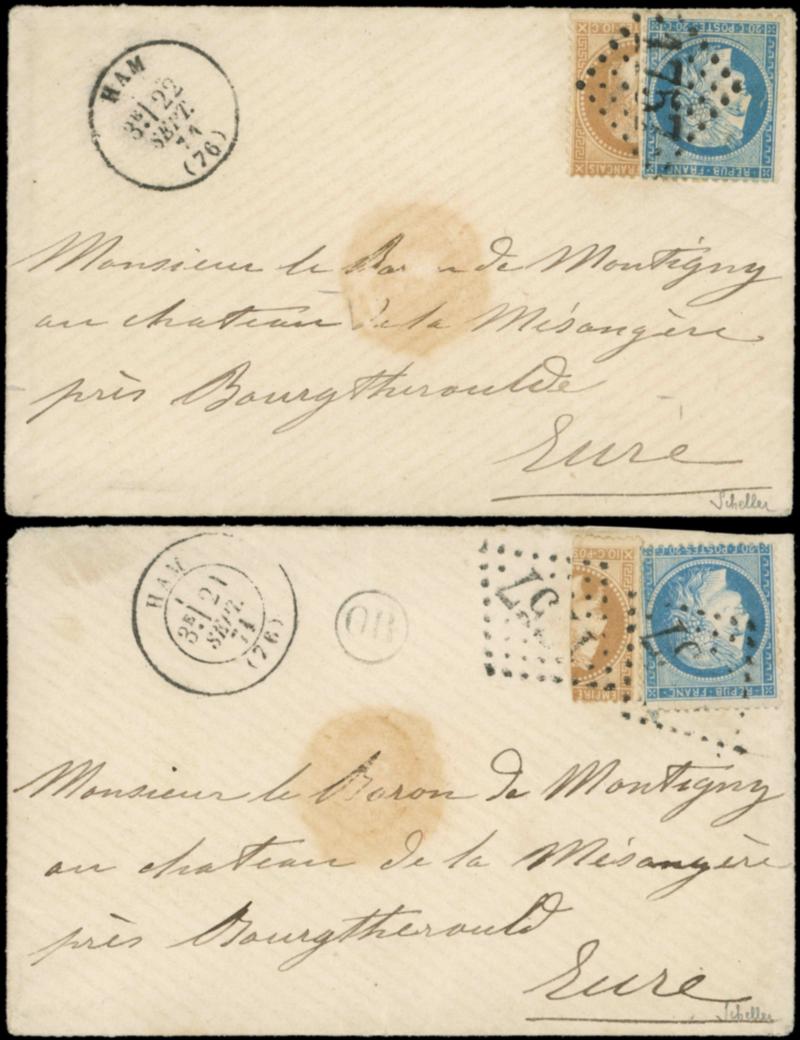 HAM
3E 22
SEPT.
71
(76)
10 C
FRANÇAIS
20 C · POSTES · 20 C
REPUB · FRANC
1757
Monsieur le Baron de Montigny
au chateau de la Mésangère
près Bourgtheroulde
Eure
Scheller
HAM
3E 21
SEPT.
71
(76)
OR
10 C · POS
EMPIRE
20 C · POSTES · 20 C
REPUB · FRANC
57
57
Monsieur le Baron de Montigny
au chateau de la Mésangère
près Bourgtherould
Eure
Scheller